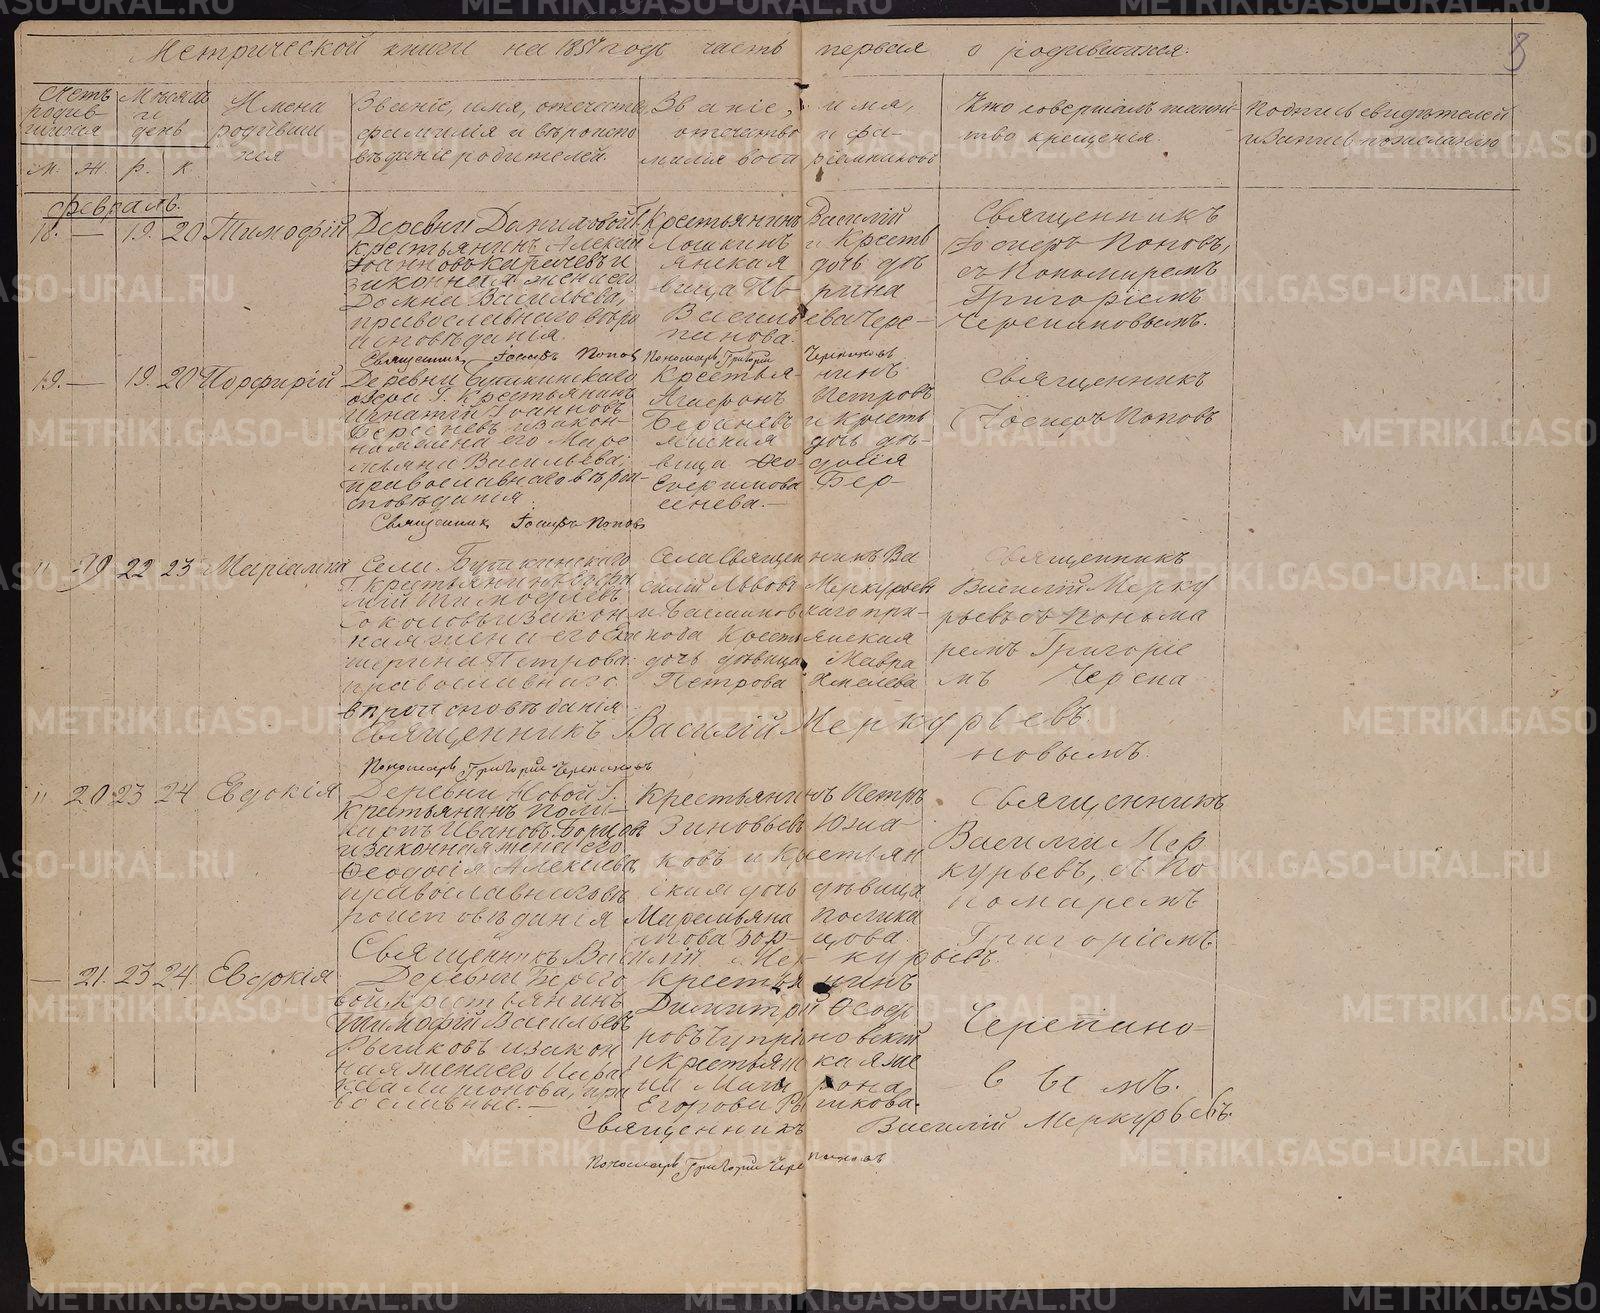 Метрической книги на 1857 годъ часть первая о родившихся.
8
Счетъ родившихся
Мѣсяцъ и день
Имена родившихся
Званіе, имя, отчество, фамилія и вѣроисповѣданіе родителей.
Званіе, имя, отечество и фамилія воспріемниковъ
Кто совершалъ таинство крещенія.
Подпись свидѣтелей
м. ж. р. к.
Февраль.
18. — 19. 20 Тимофѣй
Деревни
крестьянинъ Алексѣй
Іоанновъ Карачевъ и
законная жена его
Домна Васильева,
православнаго вѣро
исповѣданія.
Крестьянинъ Василій
Лошкинъ и Кресть
янская дочь дѣ
вица Ирина
Васильева Чере-
панова.
Священникъ
Іосифъ Поповъ,
съ Пономаремъ
Григоріемъ
Черепановымъ.
Священникъ Іосифъ Поповъ Пономарь Григорій Черепановъ
19. — 19. 20 Порфирій
Деревни Буткинскаго
озера Г. Крестьянинъ
Игнатій Іоанновъ
Берсеневъ и закон-
ная жена его Маре
мьяна Васильева;
православнаго вѣрои-
сповѣданія.
Крестья-нинъ
Агафонъ Петровъ
Берсеневъ и Кресть
янская дочь дѣ-
вица Ѳеодосія
Бер-
сенева.—
Священникъ
Іосифъ Поповъ
Священникъ Іосифъ Поповъ
" 19 22 23 Маріамна
Села Буткинскаго
Г. крестьянинъ
Тимофеевъ
Соколовъ и закон
ная жена его Ека
терина Петрова
православнаго
вѣроисповѣданія.
Села Священникъ Ва
силій Львовъ Меркурьевъ
и
Крестьянская
дочь дѣвица Мавра
Петрова Хмелева
Священникъ
Василій Мерку
рьевъ съ Понома
ремъ Григоріе
мъ Черепа
новымъ.
Священникъ Василій Меркурьевъ.
Пономарь Григорій Черепановъ
" 20 23 24 Евдокія
Деревни Новой Г.
Крестьянинъ Поли-
карпъ Ивановъ Борцовъ
и законная жена его
Ѳеодосія Алексѣева,
православнаго вѣ
роисповѣданія
Крестьянинъ Петръ
Зиновьевъ Южа-
ковъ и Крестьян
ская дочь дѣвица
Маремьяна Полика
рпова Бор-цова.
Священникъ
Василій Мер
курьевъ, съ По
номаремъ
Григоріемъ
Священникъ Василій Мер-курьевъ.
— 21. 23 24. Евдокія
Деревни Берего
вой Крестьянинъ
Тимофѣй Васильевъ
Рычковъ и закон
ная жена его Параскева
православные.—
Крестьянинъ
Димитрій Ѳеодо
ровъ
и Крестьян ская же
на Матрона
Егорова Рычкова.
Черепано-
вымъ.
Священникъ Василій Меркурьевъ.
Пономарь Григорій Черепановъ